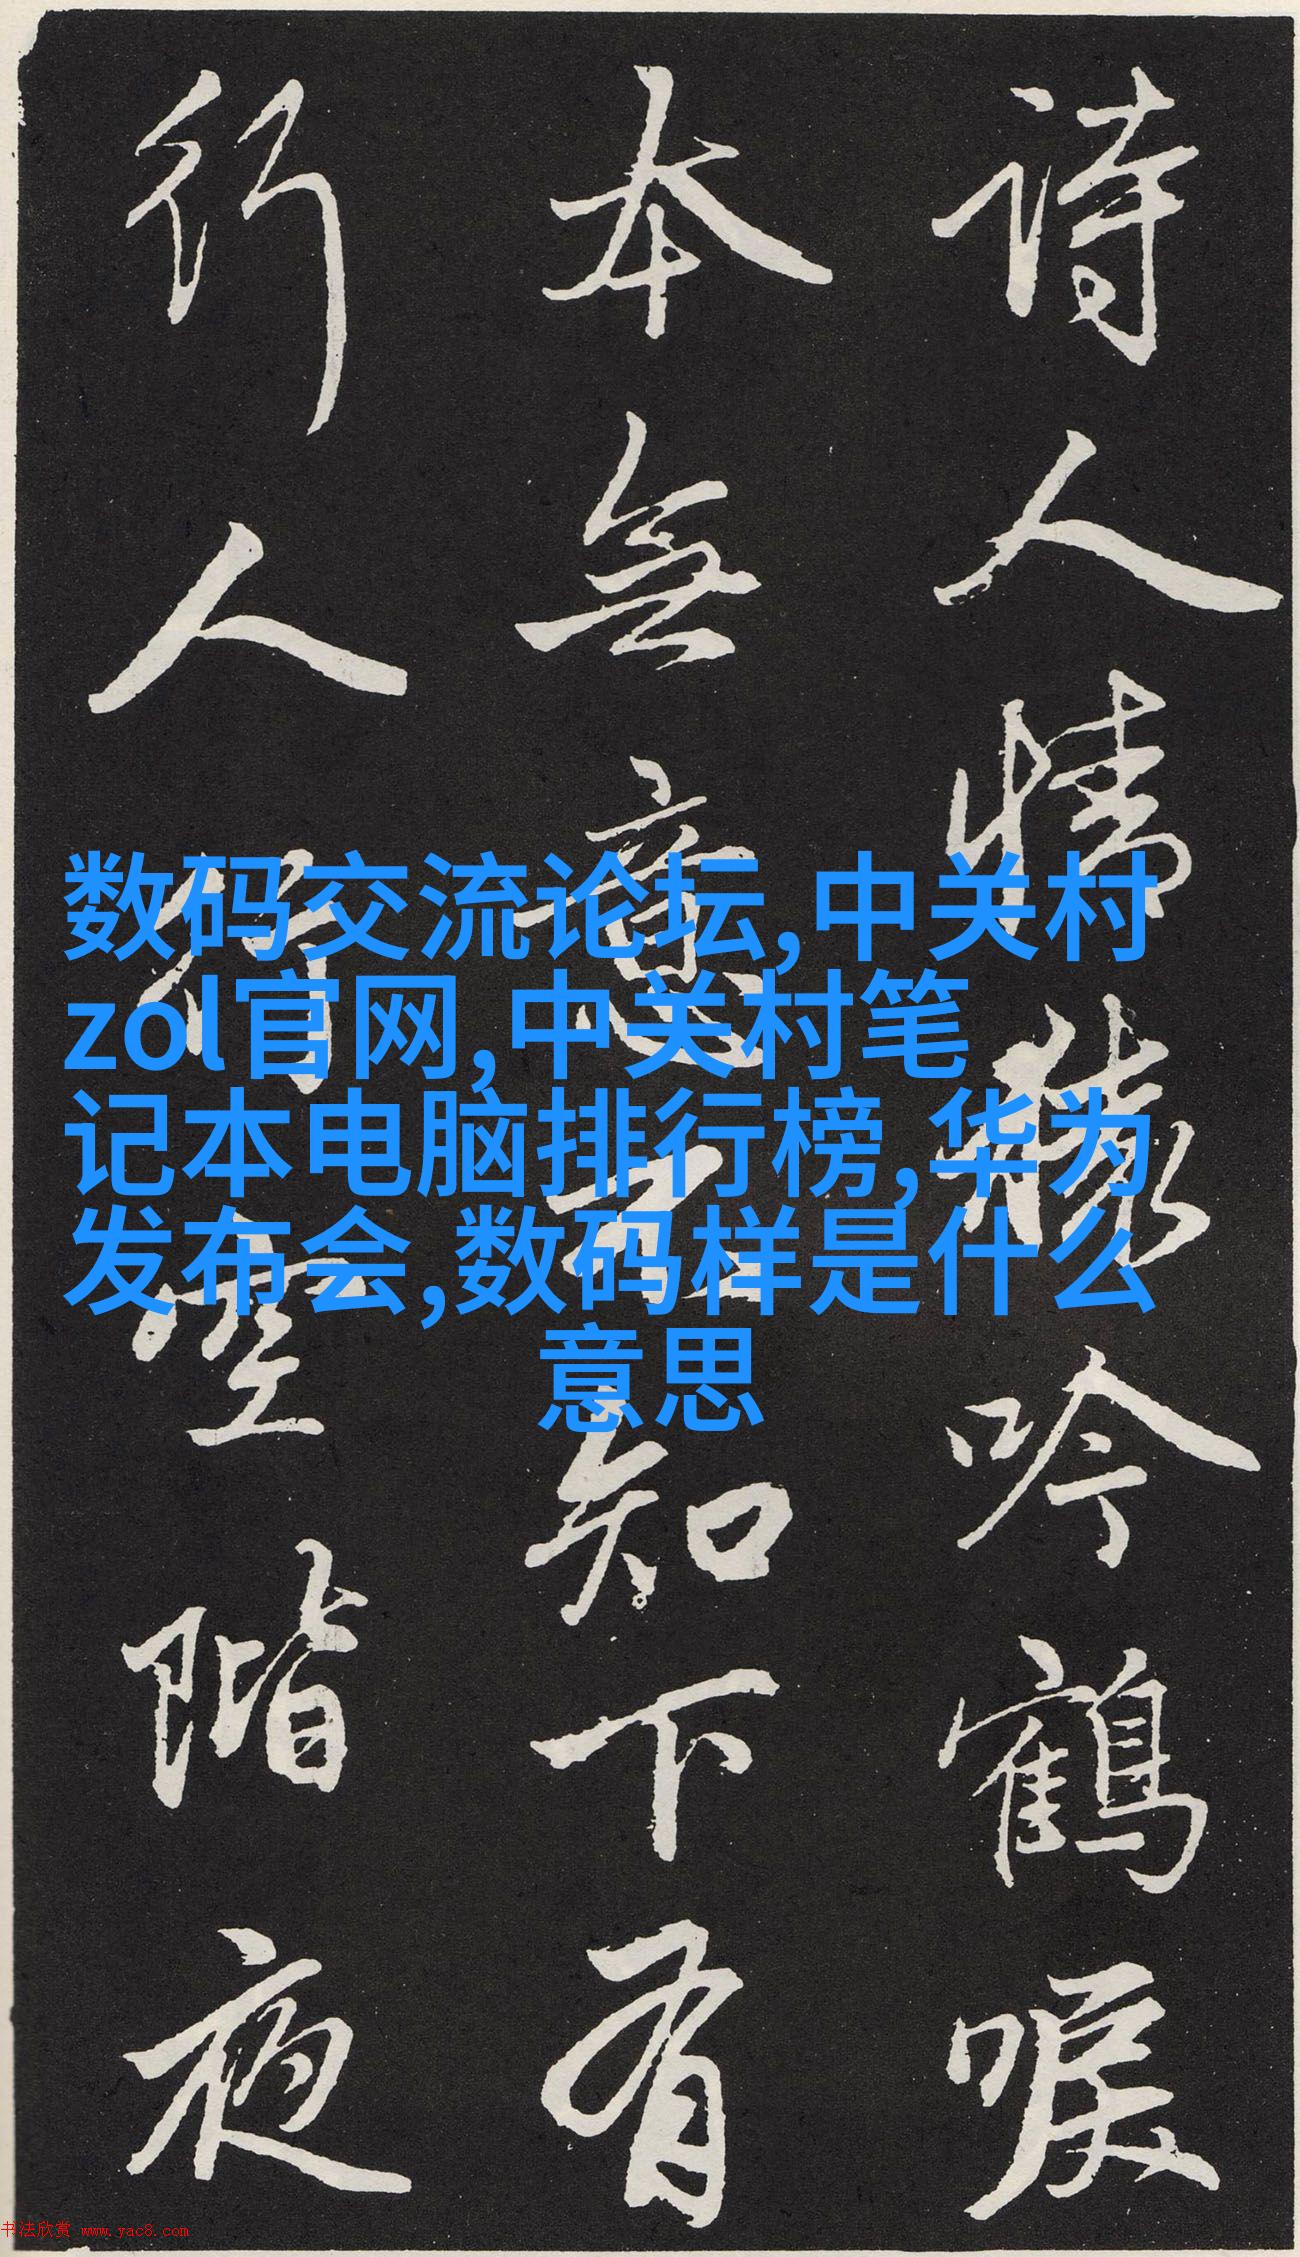 诗人情猿吟鹤唳
本无意
知下有
行人行空阶夜
数码交流论坛,中关村
zol官网,中关村笔
记本电脑排行榜,华为
发布会,数码样是什么
意思
书法欣赏 www.yac8.com